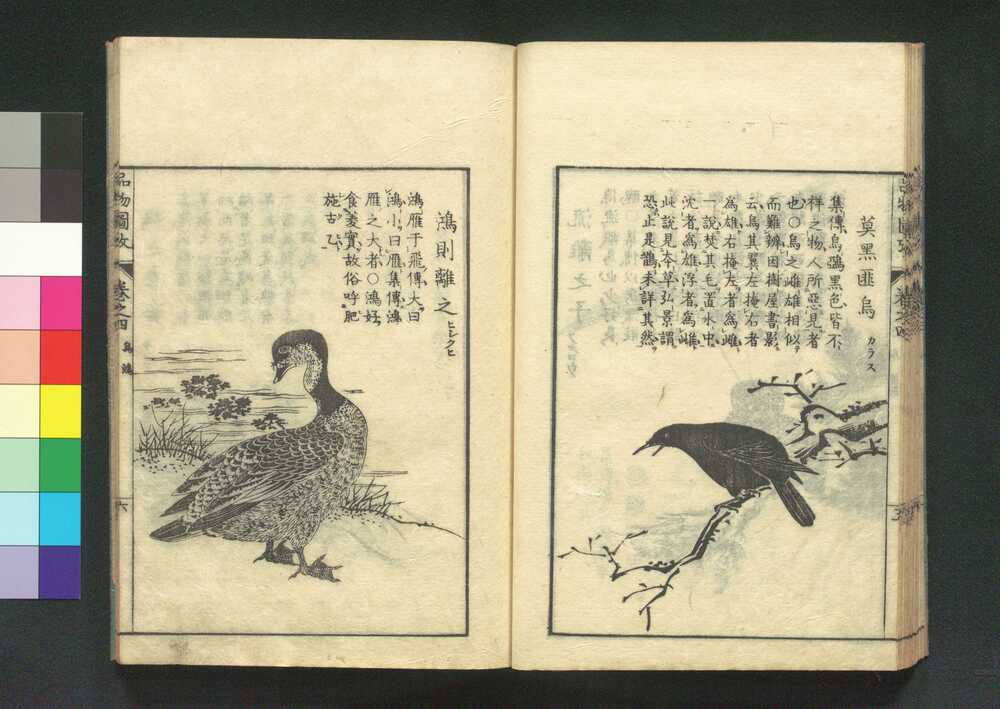 莫黑匪烏
カラス
集傳烏鴉黑色皆不
祥之物人所惡見者
也〇烏之雌雄相似
而難辨因樹屋書影
云烏其翼左掩右者
爲雄右掩左者爲雌
一說焚其毛置水中
沈者爲雄浮者爲雌
此說見本草弘景謂
恐止是鵲未詳其然
鴻則離之
ヒシクヒ
鴻雁于飛傳大曰
鴻小曰雁集傳鴻
雁之大者〇鴻好
食菱實故俗呼肥
施古乙
品物圖攷
卷之四
鳥
六